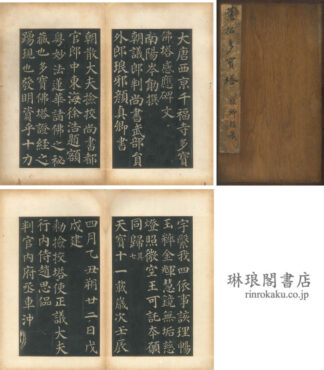 大唐西京千福寺多寶
佛塔感應碑文
南陽岑勛撰
朝議郎判尚書武部員
外郎琅邪顏真卿書
朝散大夫撿挍尚書都
官郎中東海徐浩題額
粵妙法蓮華諸佛之祕
藏也多寶佛塔證經之
踊現也發明資乎十力
舊拓多寶塔
字縈我四依事該理暢
玉粹金輝慧鏡無垢慈
燈照微空王可託本願
同歸七
天寶十一載歲次壬辰
四月乙丑朔廿二日戊
戌建
勑撿挍塔使正議大夫
行內侍趙思偘
判官內府丞車沖
琳琅閣書店
rinrokaku.co.jp